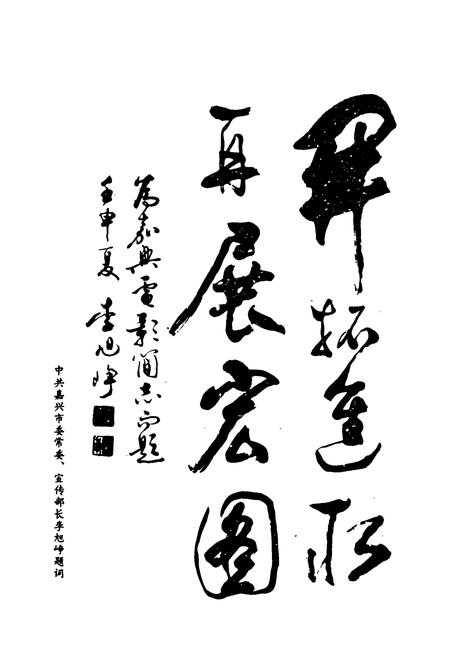 開拓進取
再展宏圖
為嘉興電影簡志而題
壬申夏 李旭峥
中共嘉兴市委常委、宣传部长李旭峥题词